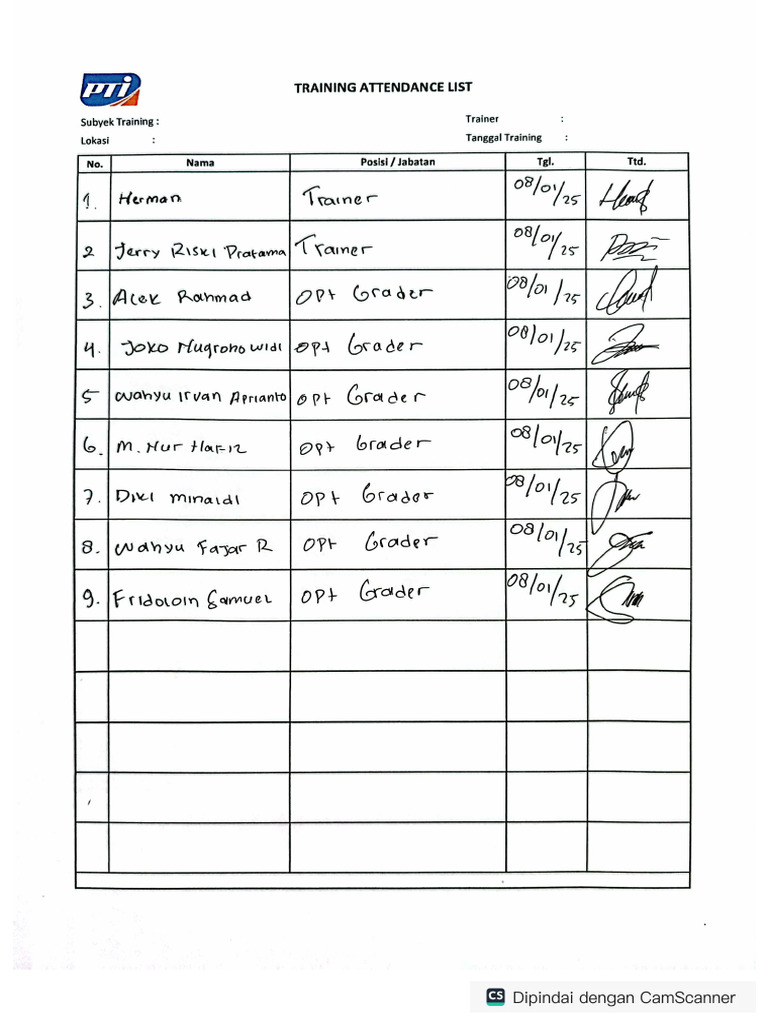 PTi
TRAINING ATTENDANCE LIST
Subyek Training :
Trainer :
Lokasi :
Tanggal Training :
No. Nama Posisi / Jabatan Tgl. Ttd.
1. Herman Trainer 08/01/25
2 Jerry Riski Pratama Trainer 08/01/25
3. Acek Rahmad OPt Grader 08/01/25
4. Joko Nugroho widi OPt Grader 08/01/25
5 Wahyu Irvan Aprianto OPt Grader 08/01/25
6. M. Nur Hafiz OPt Grader 08/01/25
7. Diki Minaldi OPt Grader 08/01/25
8. Wahyu Fajar R OPt Grader 08/01/25
9. Fridoloin Samuel OPt Grader 08/01/25
CS Dipindai dengan CamScanner